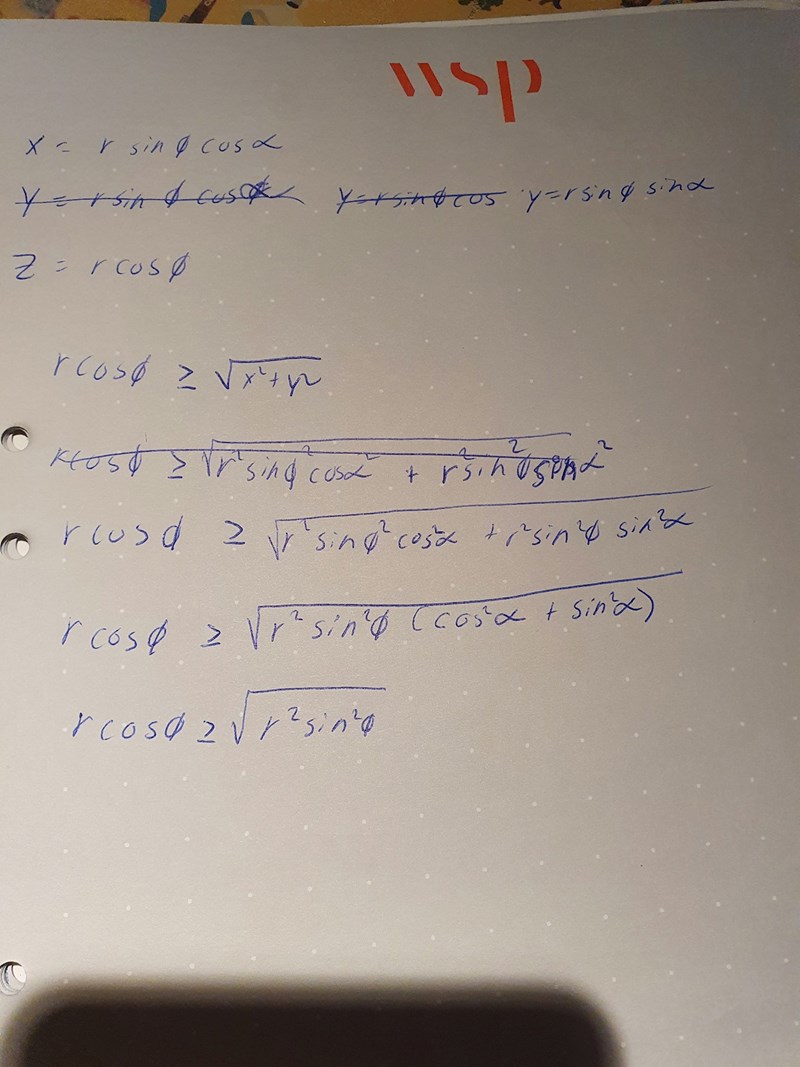 wsp
x = r sin ϕ cos α
y = r sin ϕ cos α y = r sin ϕ cos y = r sin ϕ sin α
z = r cos ϕ
r cos ϕ ≥ √(x² + y²)
r cos ϕ ≥ √(r² sin ϕ² cos α² + r² sin² ϕ sin α²)
r cos ϕ ≥ √(r² sin ϕ² cos² α + r² sin² ϕ sin² α)
r cos ϕ ≥ √(r² sin² ϕ (cos² α + sin² α))
r cos ϕ ≥ √(r² sin² ϕ)